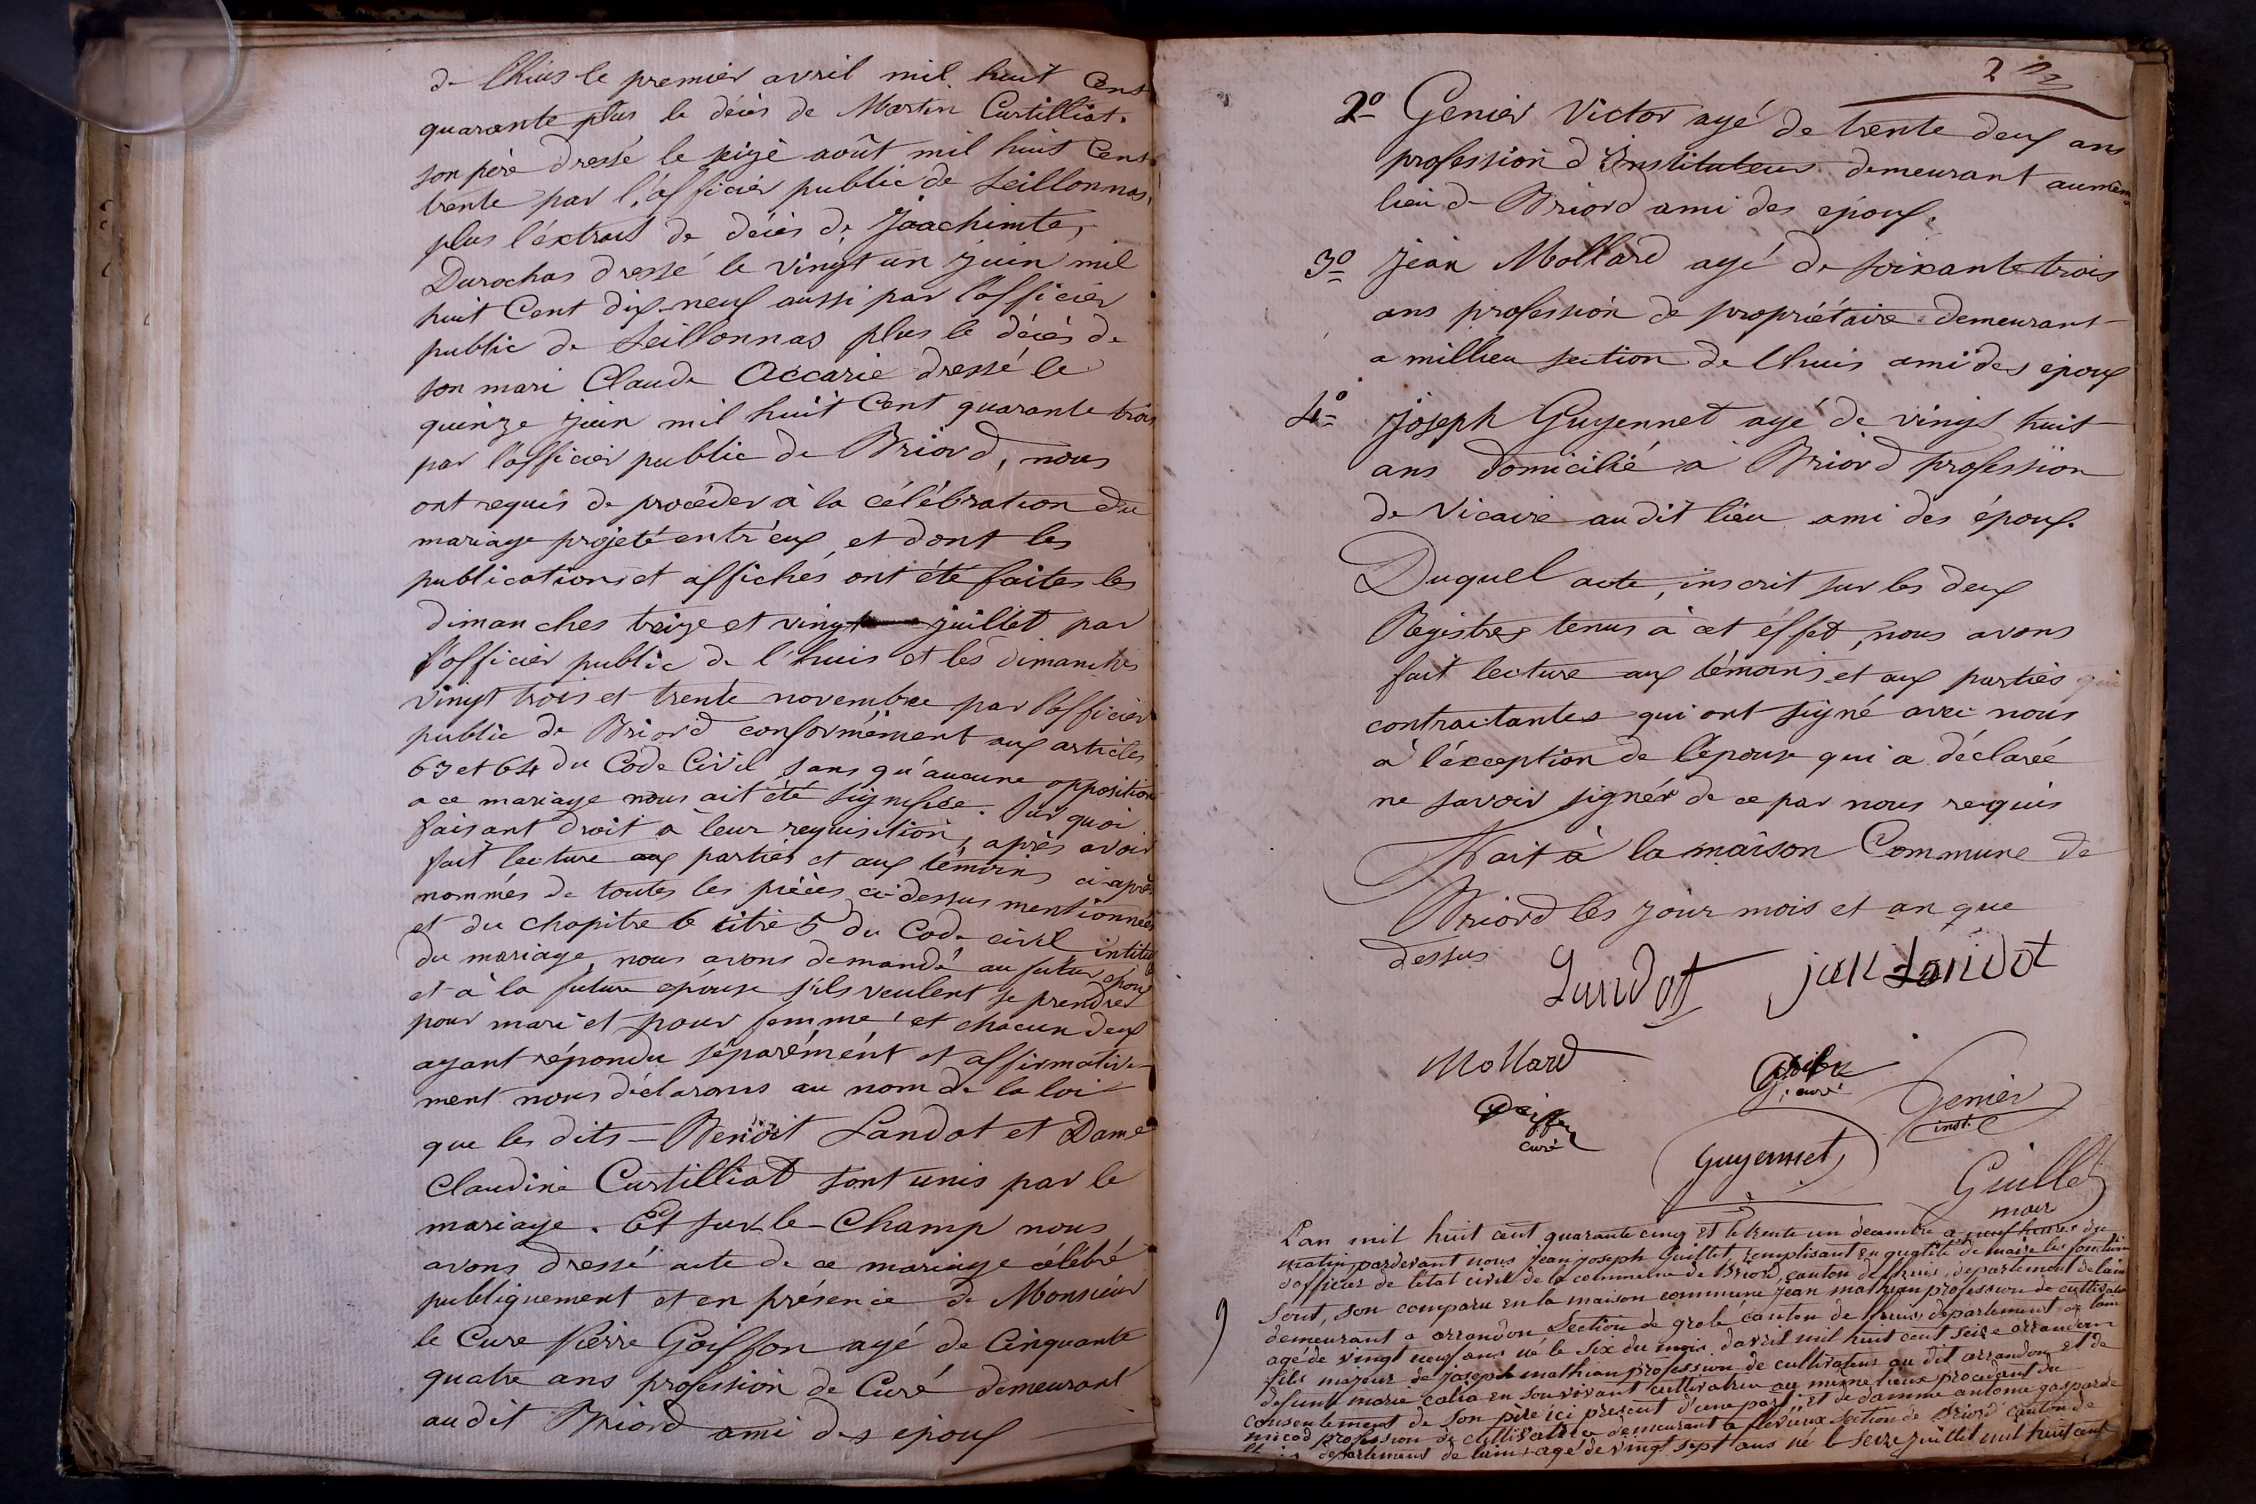 de lhuis le premier avril mil huit Cent
quarante plus le décès de Martin Curtilliat.
son père dressé le seize août mil huit Cent
trente par l'officier public de Seillonnas,
plus l'éxtrait de décès de Joachimte,
Durochas dressé le vingt un Juin mil
huit Cent dix-neuf aussi par l'officier
public de Seillonnas plus le décès de
son mari Claude Accarie dressé le
quinze Juin mil huit Cent quarante trois
par l'officier public de Briord, nous
ont requis de procéder à la célébration du
mariage projeté entr'eux, et dont les
publications et affiches ont été faites les
dimanches treize et vingt juillet par
l'officier public de l'huis et les dimanches
vingt trois et trente novembre par l'officier
public de Briord conformément aux articles
63 et 64 du Code Civil sans qu'aucune opposition
a ce mariage nous ait été signifiée. Sur quoi
faisant droit à leur requisition, après avoir
fait lecture aux parties et aux témoins ci-après
nommés de toutes les pièces ci-dessus mentionnées
et du chapitre 6 titre 5 du Code civil intitulé
du mariage, nous avons demandé au futur époux
et à la future épouse s'ils veulent se prendre
pour mari et pour femme, et chacun deux
ayant répondu séparément et affirmative-
ment nous déclarons au nom de la loi
que les dits – Benoit Landot et Dame
Claudine Curtilliat sont unis par le
mariage. Et sur-le-Champ nous
avons dressé acte de ce mariage célébré
publiquement et en présence de Monsieur
le Cure Pierre Goiffon ayé de Cinquante
quatre ans profession de Curé demeurant
au dit Briord ami des époux
2
2º Genier Victor ayé de trente deux ans
profession d'Instituteur demeurant au même
lieu de Briord ami des époux.
3º Jean Mollard ayé de soixante trois
ans profession de propriétaire demeurant
a millieu section de lhuis ami des époux
4º Joseph Guyennet ayé de vingt huit
ans domicilié à Briord profession
de Vicaire au dit lieu ami des époux.
Duquel acte, inscrit sur les deux
Registres tenus à cet éffet, nous avons
fait lecture aux témoins et aux parties qui
contractantes qui ont signé avec nous
à l'éxception de l'épouse qui a déclarée
ne savoir signér de ce par nous requis
Fait à la maison Commune de
Briord les jour mois et an que
dessus
Landot Jean Landot
Mollard
curé
Genier
inst.
Goiffon
curé
Guyennet
Guillet
maire
Lan mil huit cent quarante cinq et le trente un decembre a neuf heures du
matin, pardevant nous jean joseph Guillet, remplisant en qualité de maire les fonctions
dofficier de letat civil de la commune de Briord, canton de lhuis, departement de lain
Sont, son comparu en la maison commune jean mathian profession de cultivateur
demeurant a arrandon Section de grolé canton de lhuis departement de lain
agé de vingt neuf ans né le Six du mois davril mil huit cent seize arrandon
fils majeur de Joseph mathian profession de cultivateur au dit arrandon et de
defunte marie calia en son vivant cultivatrice au meme lieux procedant du
consentement de son père ici present d'une part, et de damme antoine gasparde
micod profession de cultivatrice demeurant a flévieux section de Briord canton de
lhuis departement de lain agé de vingt sept ans né le seize juillet mil huit cent